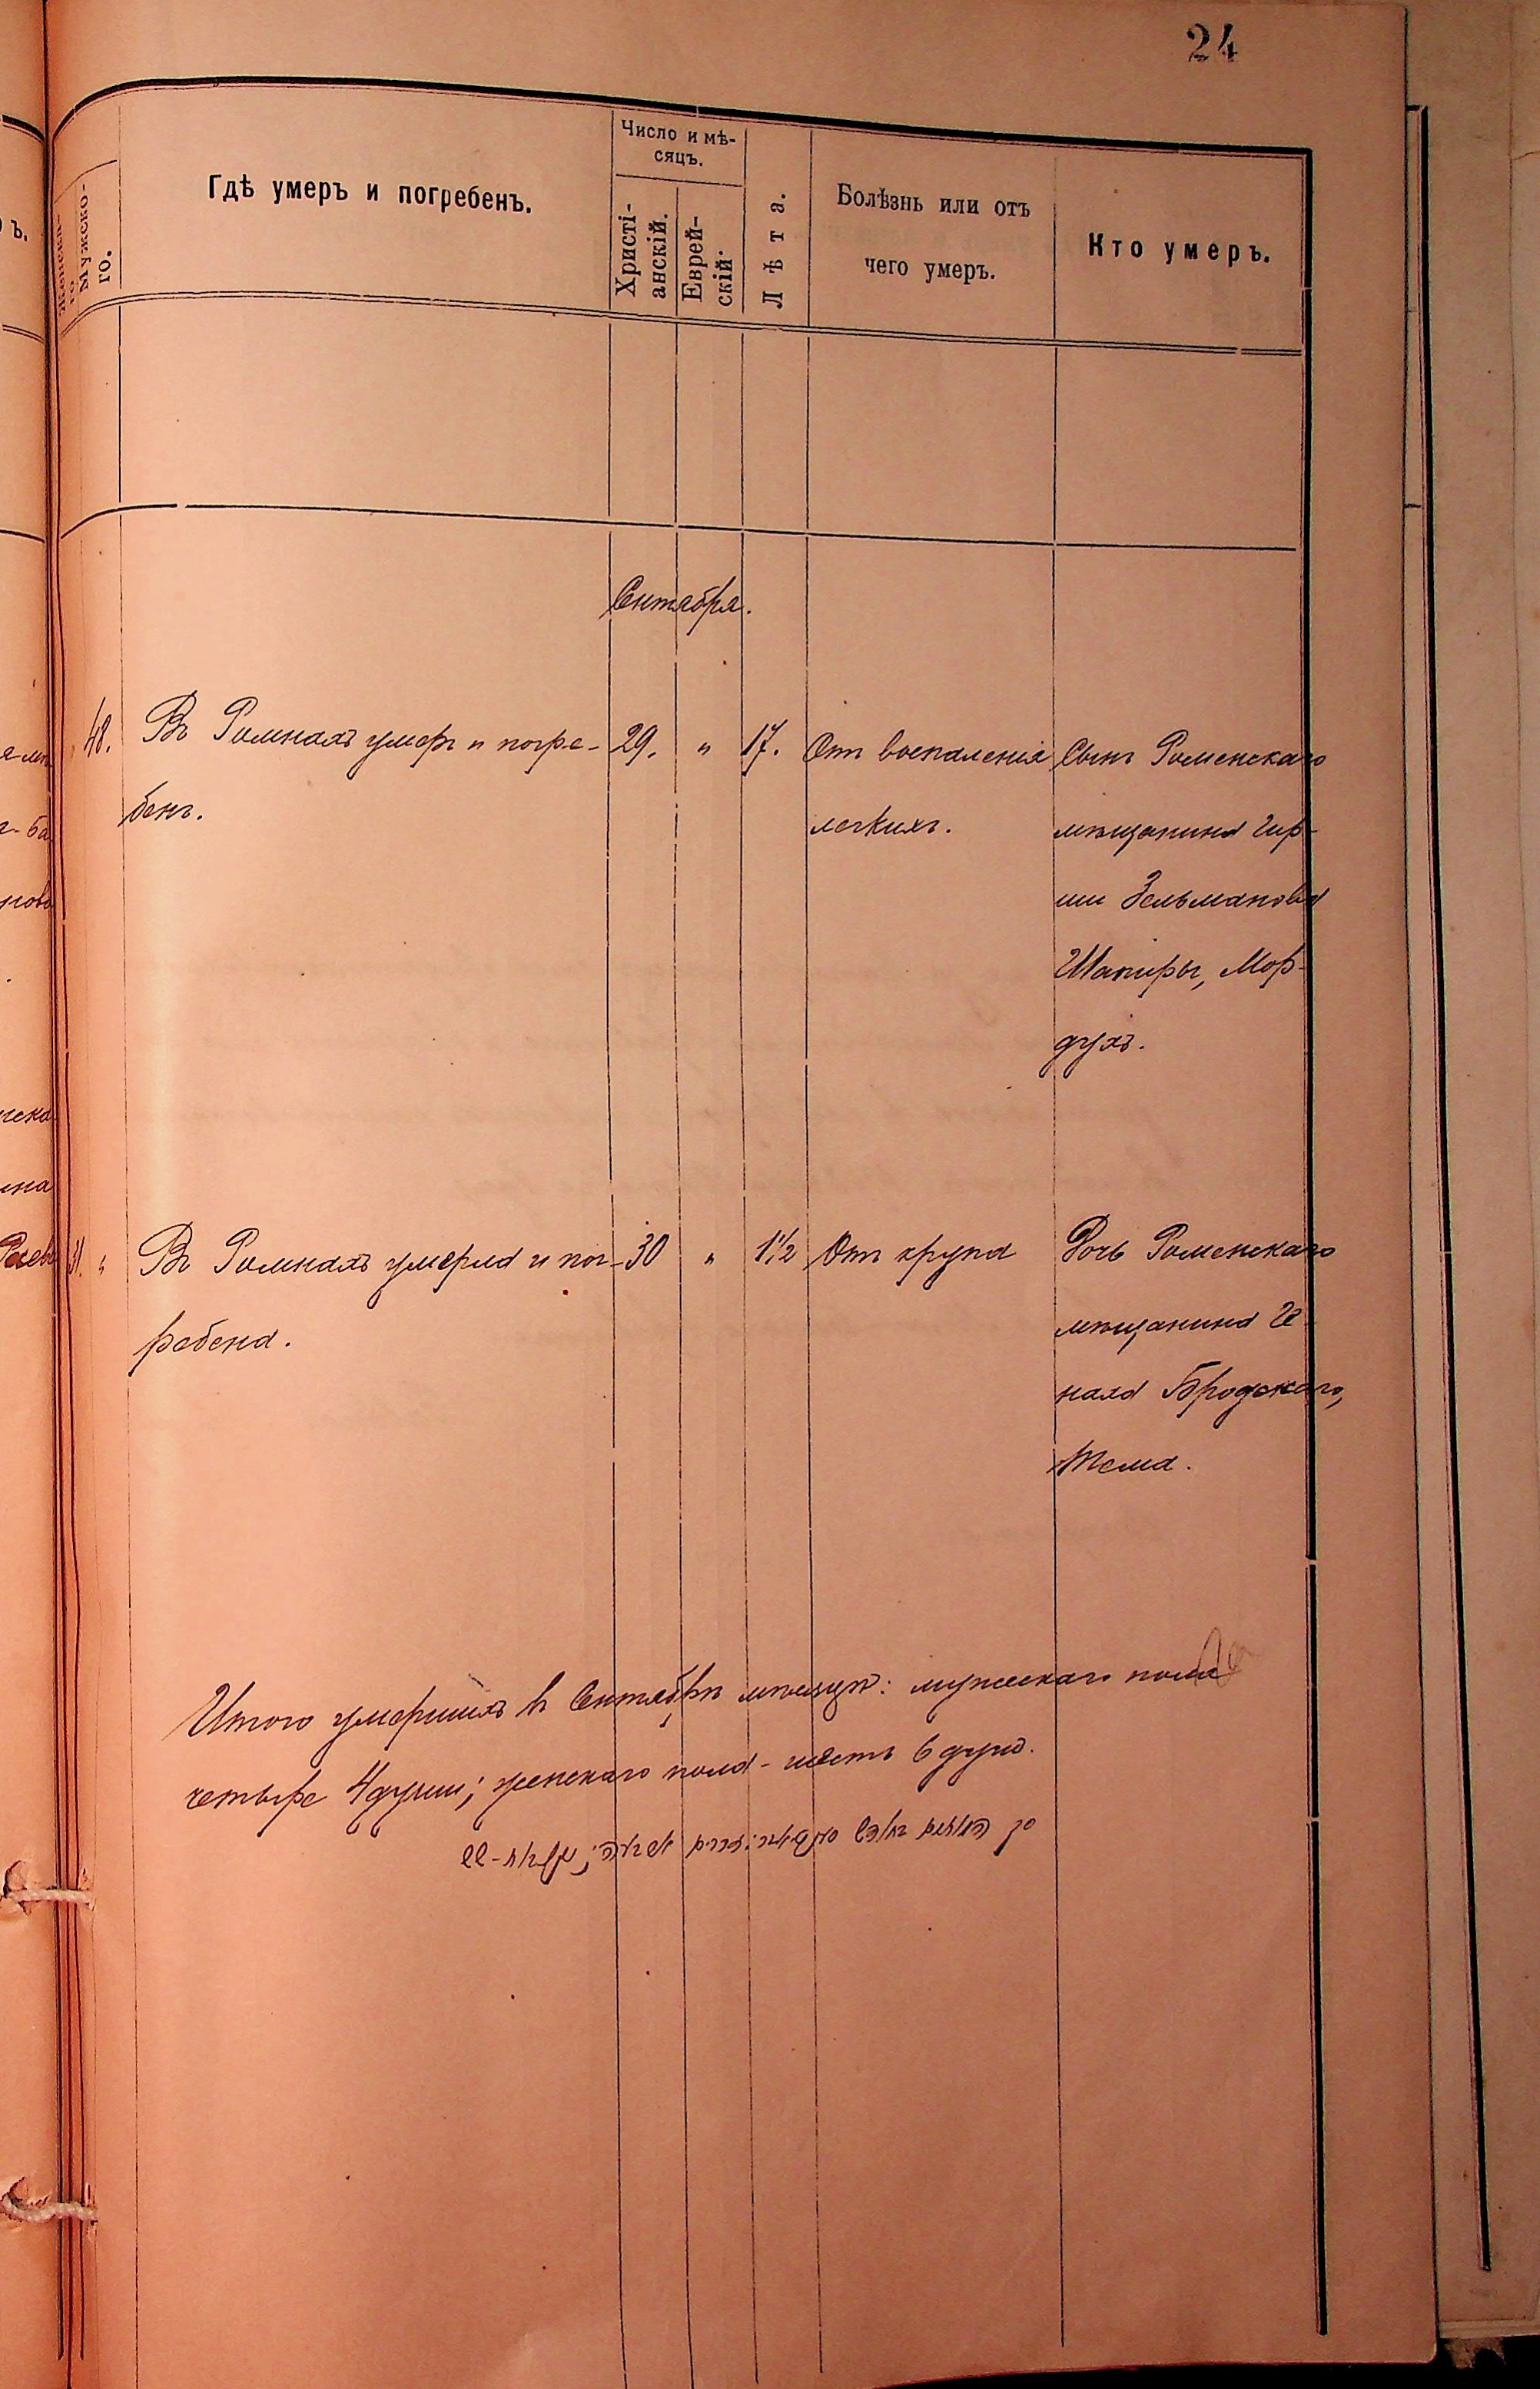 24
Женска-
го
Мужско-
го.
Гдѣ умеръ и погребенъ.
Число и мѣ-
сяцъ.
Христі-
анскій.
Еврей-
скій.
Лѣта.
Болѣзнь или отъ
чего умеръ.
Кто умеръ.
Сентября.
48.
Въ Ромнахъ умеръ и погре-
бенъ.
29.
"
17.
Отъ воспаленія
легкихъ.
Сынъ Роменскаго
мѣщанина Гир-
ши Зельманова
Шапиры, Мор-
духъ.
31. "
Въ Ромнахъ умерла и пог-
ребена.
30
"
1 1/2
Отъ крупа
Дочь Роменскаго
мѣщанина
Бродскаго,
Тема.
Итого умершихъ въ Сентябрѣ мѣсяцѣ: мужескаго пола
четыре 4 души; женскаго пола - шесть 6 душъ.